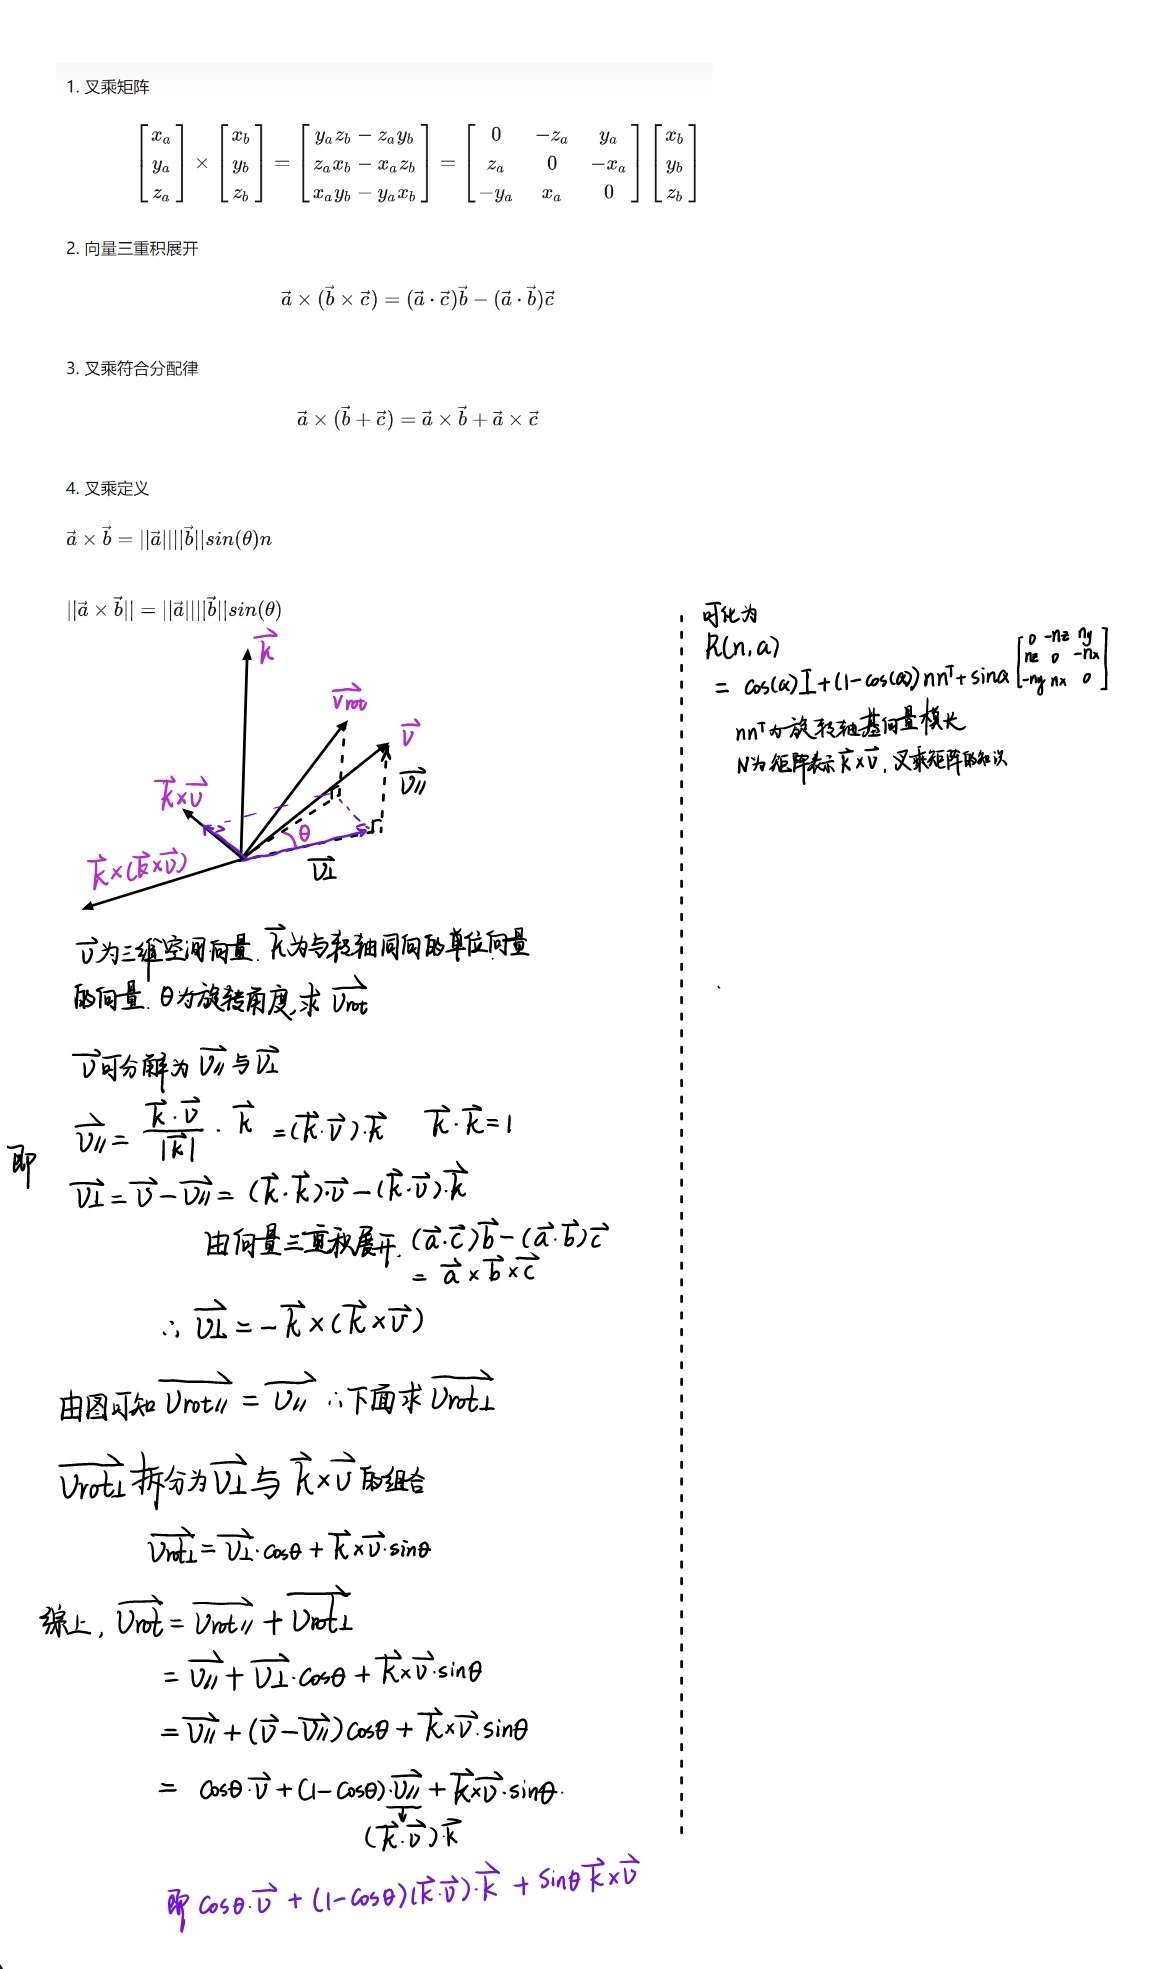 1. 叉乘矩阵
[x_a y_a z_a] × [x_b y_b z_b] = [y_a z_b − z_a y_b  z_a x_b − x_a z_b  x_a y_b − y_a x_b] = [0 −z_a y_a  z_a 0 −x_a  −y_a x_a 0] [x_b y_b z_b]
2. 向量三重积展开
a⃗ × (b⃗ × c⃗) = (a⃗ · c⃗)b⃗ − (a⃗ · b⃗)c⃗
3. 叉乘符合分配律
a⃗ × (b⃗ + c⃗) = a⃗ × b⃗ + a⃗ × c⃗
4. 叉乘定义
a⃗ × b⃗ = ||a⃗||||b⃗||sin(θ)n
||a⃗ × b⃗|| = ||a⃗||||b⃗||sin(θ)
k⃗
v⃗rot
v⃗
v⃗∥
k⃗×v⃗
θ
k⃗×(k⃗×v⃗)
v⃗⊥
v⃗为三维空间向量. k⃗为与转轴同向的单位向量
的向量. θ为旋转角度,求 v⃗rot
v⃗可分解为 v⃗∥ 与 v⃗⊥
即 v⃗∥ = (k⃗·v⃗)/|k⃗| · k⃗ = (k⃗·v⃗)·k⃗ k⃗·k⃗=1
v⃗⊥ = v⃗ − v⃗∥ = (k⃗·k⃗)·v⃗ − (k⃗·v⃗)·k⃗
由向量三重积展开. (a⃗·c⃗)b⃗ − (a⃗·b⃗)c⃗
= a⃗×b⃗×c⃗
∴ v⃗⊥ = −k⃗×(k⃗×v⃗)
由图可知 v⃗rot∥ = v⃗∥ ∴下面求 v⃗rot⊥
v⃗rot⊥ 拆分为 v⃗⊥ 与 k⃗×v⃗ 的组合
v⃗rot⊥ = v⃗⊥·cosθ + k⃗×v⃗·sinθ
综上, v⃗rot = v⃗rot∥ + v⃗rot⊥
= v⃗∥ + v⃗⊥·cosθ + k⃗×v⃗·sinθ
= v⃗∥ + (v⃗−v⃗∥)cosθ + k⃗×v⃗·sinθ
= cosθ·v⃗ + (1−cosθ)·v⃗∥ + k⃗×v⃗·sinθ.
(k⃗·v⃗)·k⃗
即 cosθ·v⃗ + (1−cosθ)(k⃗·v⃗)·k⃗ + sinθ k⃗×v⃗
可化为
R(n,a)
= cos(α)I + (1−cos(α))nnᵀ + sinα [0 −nz ny  nz 0 −nx  −ny nx 0]
nnᵀ为旋转轴基向量模长
N为矩阵表示 k⃗×v⃗, 叉乘矩阵的知识